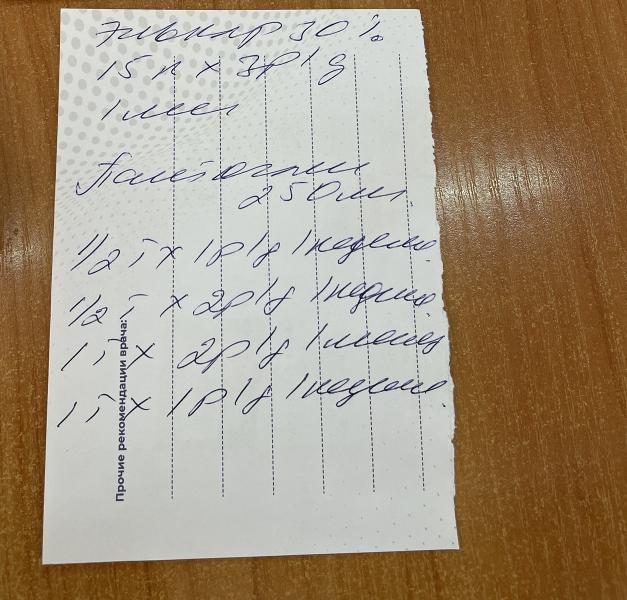 Элькар 30%
15 к x 3р/д
1 мес
Пантогам
250 мг.
1/2 т x 1р/д 1 неделю
1/2 т x 2р/д 1 неделю
1 т x 2р/д 1 месяц
1 т x 1р/д 1 неделю.
Прочие рекомендации врача: